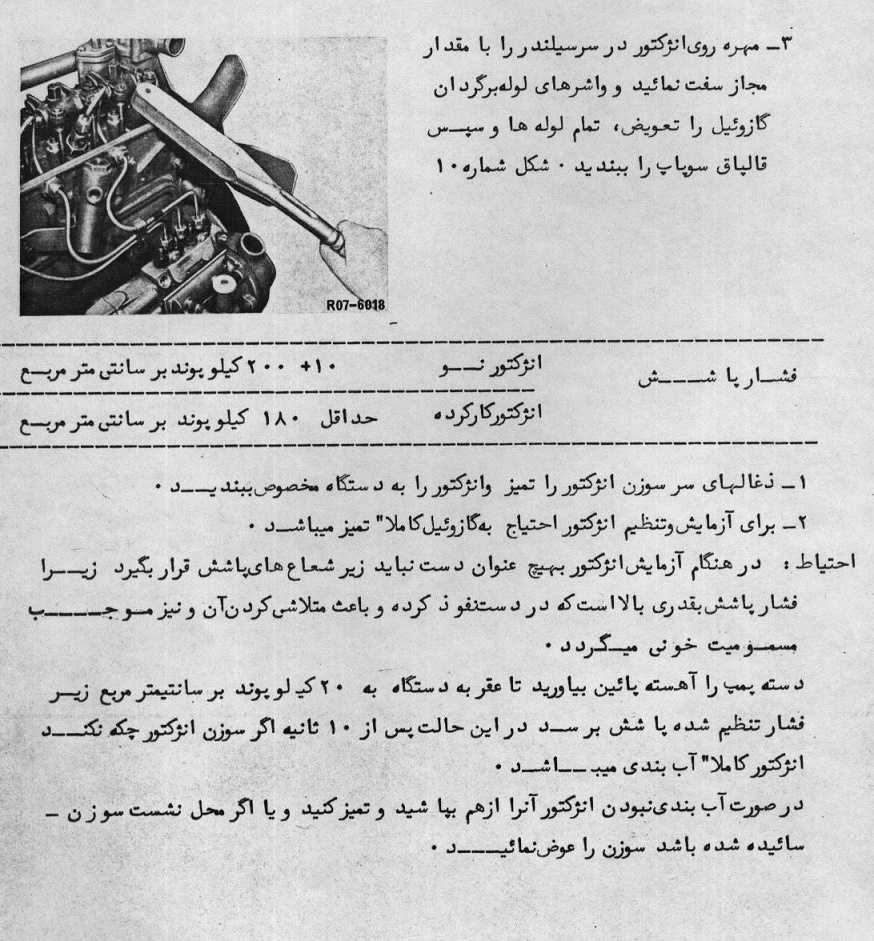 ۳ــ مهره روی انژکتور در سرسیلندر را با مقدار
مجاز سفت نمائید و واشرهای لوله‌برگردان
گازوئیل را تعویض، تمام لوله ها و سپــس
قالپاق سوپاپ را ببندید ۰ شکل شماره ۱۰
R07-6018
فشــار پا شــــش
انژکتور نـــو ۱۰+ ۲۰۰ کیلو پوند بر سانتی متر مربــع
انژکتورکارکرده حداقل ۱۸۰ کیلو پوند بر سانتی متر مربــع
۱ــ ذغالهای سر سوزن انژکتور را تمیز وانژکتور را به دستگاه مخصوص ببندیـــد ۰
۲ــ برای آزمایش وتنظیم انژکتور احتیاج به‌گازوئیل کاملا" تمیز میباشــد ۰
احتیاط : در هنگام آزمایش انژکتور بهیچ عنوان دست نباید زیر شعاع های پاشش قرار بگیرد زیـــرا
فشار پاشش بقدری بالا است که در دست نفوذ کرده و باعث متلاشی کردن آن و نیز مــوجــــب
مسمــومیت خونی میــگردد ۰
دسته پمپ را آهسته پائین بیاورید تا عقربه دستگاه به ۲۰ کیلو پوند بر سانتیمتر مربع زیــر
فشار تنظیم شده پاشش برســد در این حالت پس از ۱۰ ثانیه اگر سوزن انژکتور چکه نکنـــد
انژکتور کاملا" آب بندی میبـــاشــد ۰
در صورت آب بندی نبودن انژکتور آنرا ازهم بپاشید و تمیزکنید و یا اگر محل نشست سوزن ــ
سائیده شده باشد سوزن را عوض نمائیــــد ۰